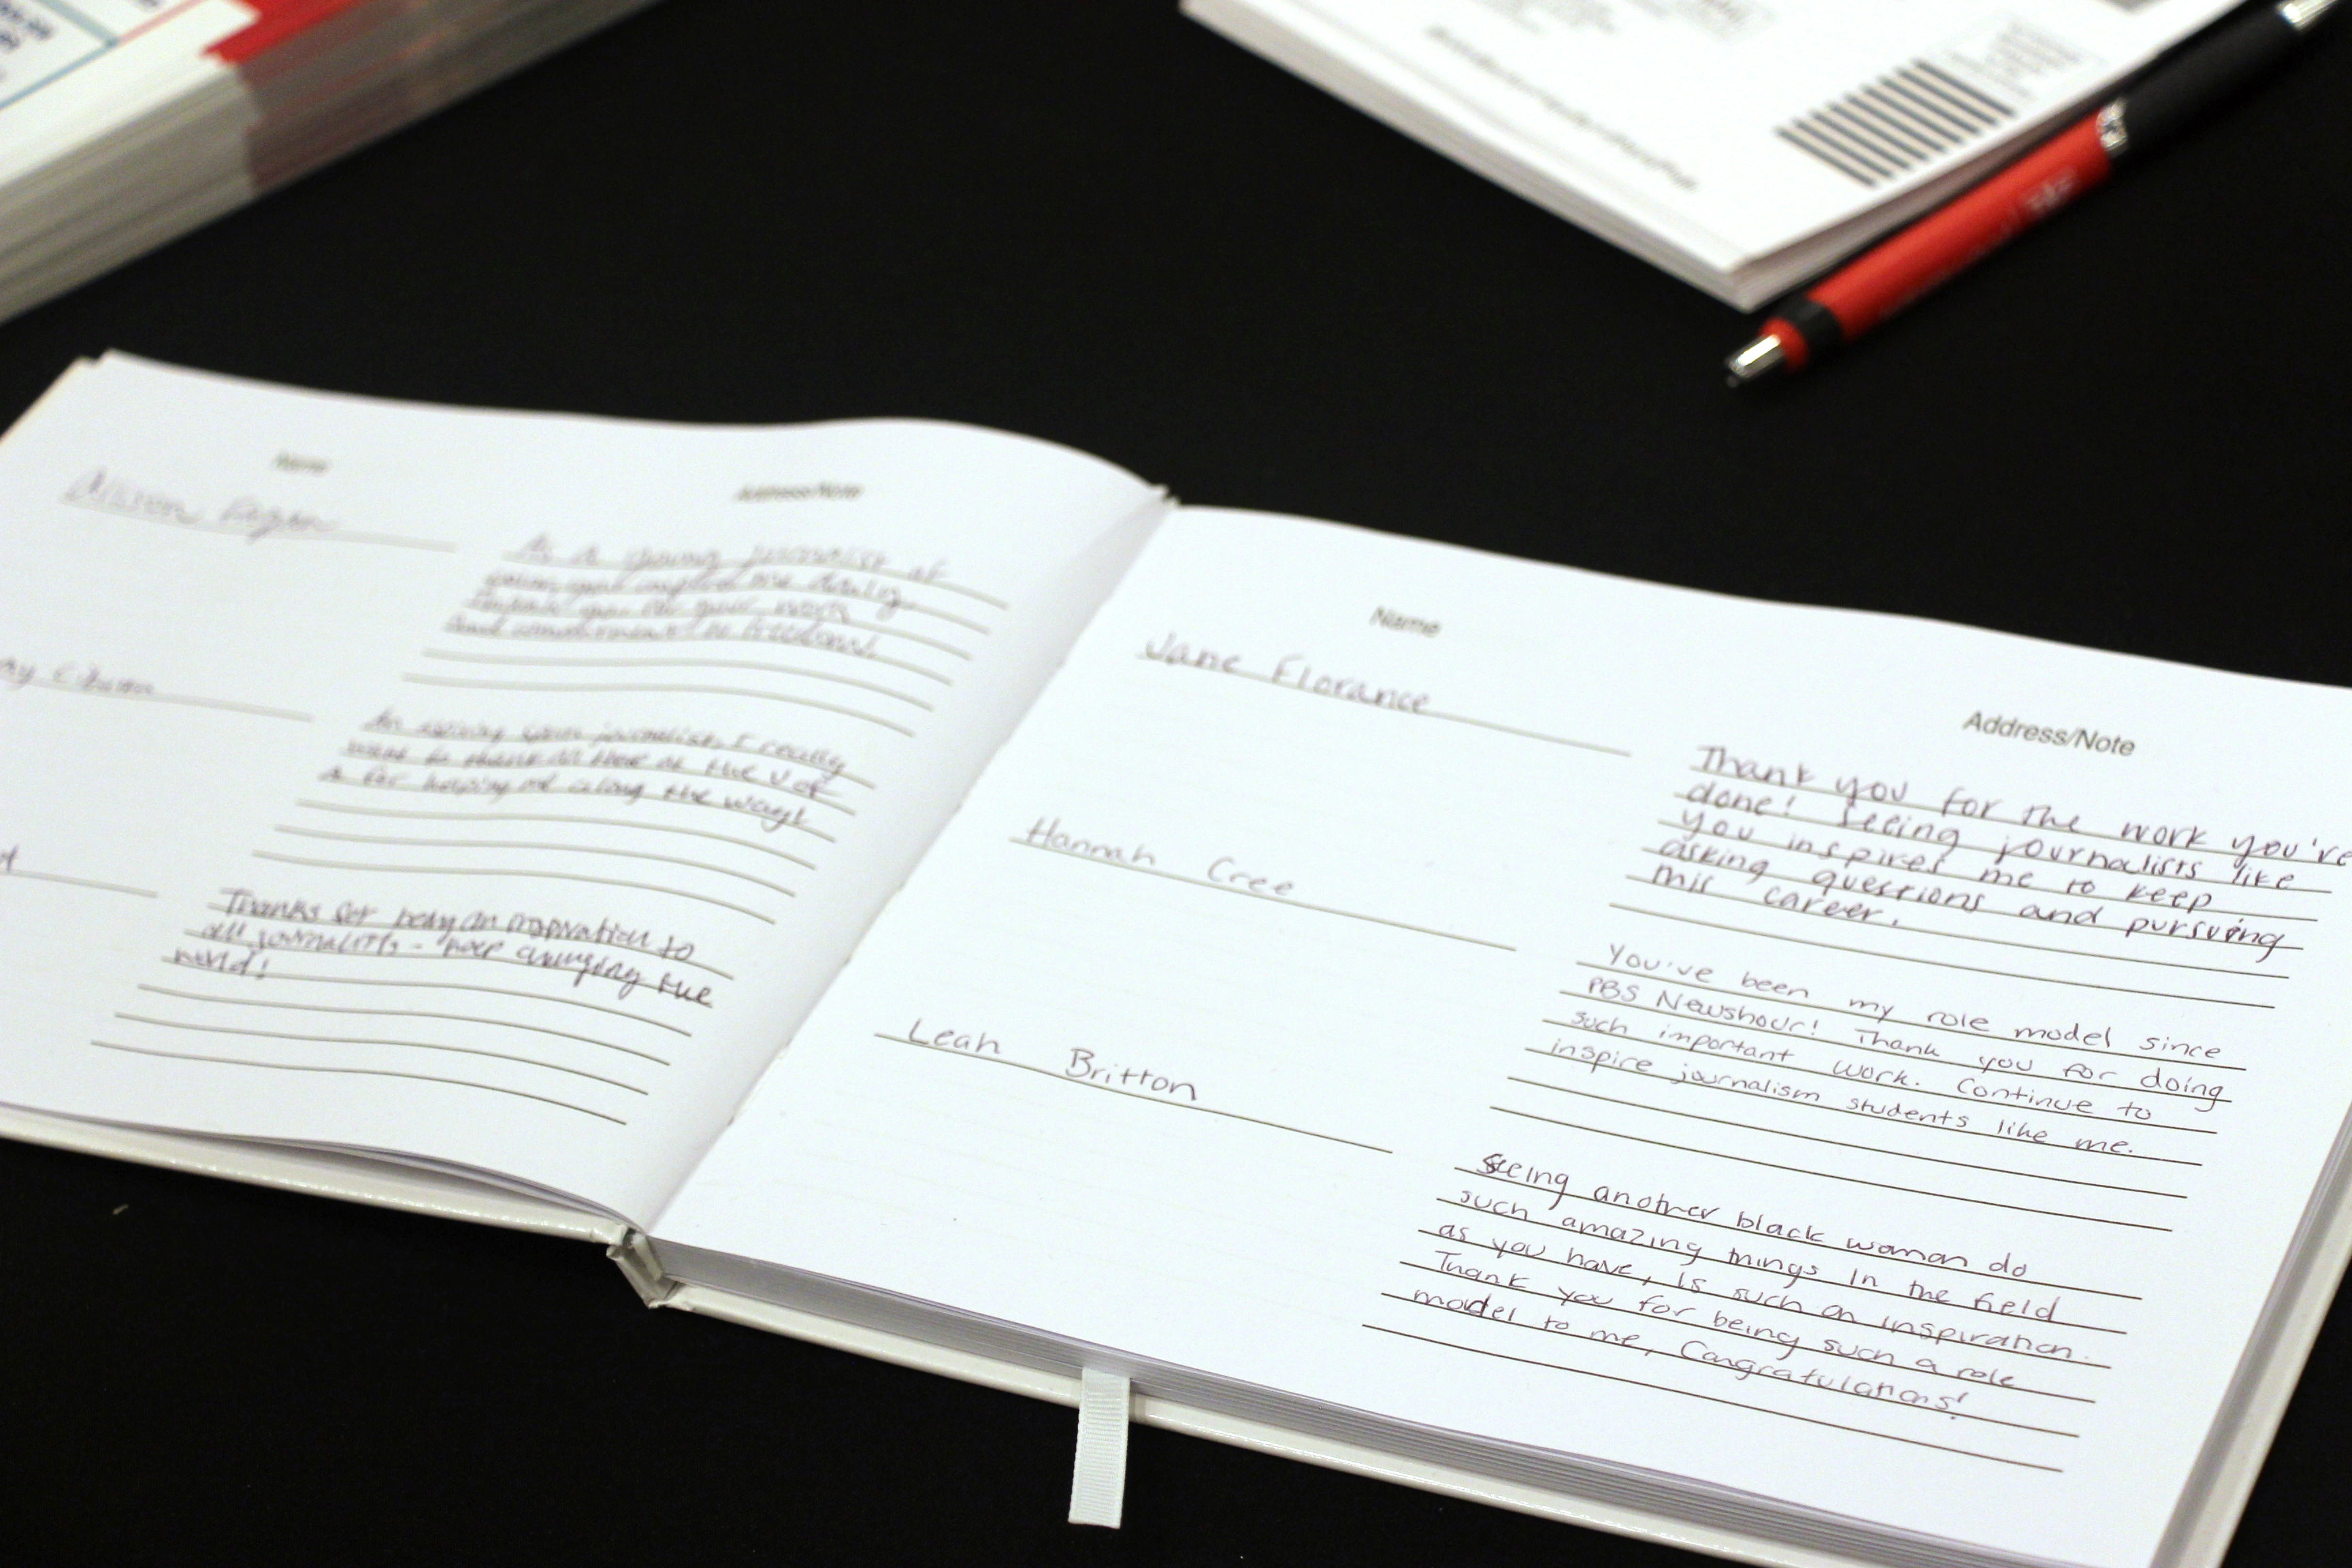 Name
Address/Note
As a young journalist at
for your work
An aspiring sports journalist, I really
want to thank all there at the U of
A for helping me along the way!
Thanks for being an inspiration to
all journalists - keep changing the
world!
Name
Address/Note
Jane Florance
Thank you for the work you've
done! Seeing journalists like
you inspires me to keep
asking questions and pursuing
this career.
Hannah Cree
You've been my role model since
PBS Newshour! Thank you for doing
such important work. Continue to
inspire journalism students like me.
Leah Britton
Seeing another black woman do
such amazing things in the field
as you have, is such an inspiration.
Thank you for being such a role
model to me, Congratulations!